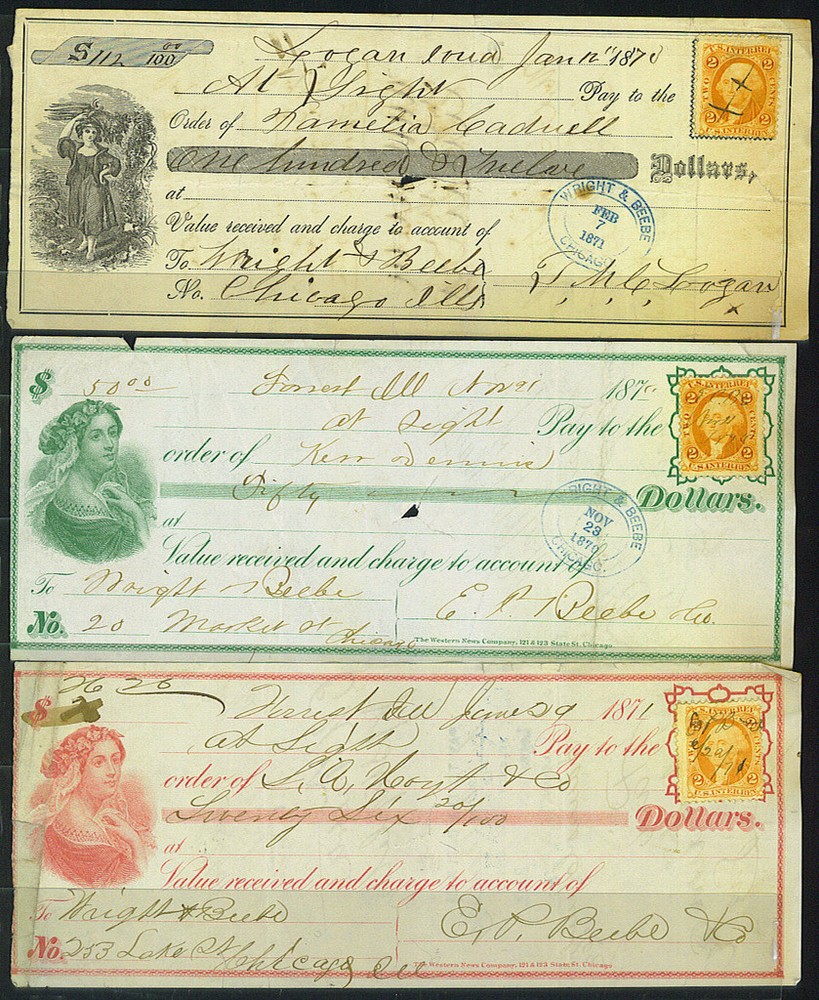 $112 00/100 Logan Iowa Jan 12" 1871
At Sight Pay to the
Order of Cadwell
One hundred & Twelve Dollars,
at
Value received and charge to account of
To Wright & Beebe
No. Chicago Ills
T. M. C. Logan
U.S. INTER. REV.
2 2
TWO CENTS
2 2
U.S. INTER. REV.
WRIGHT & BEEBE
FEB
7
1871
CHICAGO
$ 50 00 Forrest Ill Nov 21 1870
at sight Pay to the
order of Kerr Dennis
Fifty Dollars.
at
Value received and charge to account of
To Wright & Beebe
No. 20 Market St Chicago
E. P. Beebe & Co.
The Western News Company, 121 & 123 State St. Chicago
U.S. INTER. REV.
2 2
TWO CENTS
2 2
U.S. INTER. REV.
WRIGHT & BEEBE
NOV
23
1870
CHICAGO.
$ 26 20 Forrest Ill June 29 1871
At Sight Pay to the
order of S. A. Hoyt & Co
Twenty Six 20/100 Dollars.
at
Value received and charge to account of
To Wright & Beebe
No. 253 Lake St Chicago Ill
E. P. Beebe & Co
The Western News Company, 121 & 123 State St. Chicago
U.S. INTER. REV.
CENTS
2 2
U.S. INTER. REV.